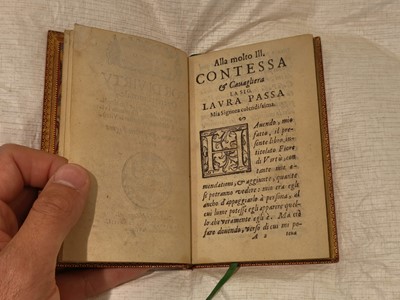 Alla molto Ill.
CONTESSA
& Cauagliera
LA SIG.
LAVRA PASSA
Mia Signora colendissima.
HAuendo, mio
fatto, il pre
sente libro, in-
titolato Fiore
di Vertù, con
tante mie
mendationi, & aggiunte, quante
si potranno vedere: mio era egli
ancho d'appoggiarlo à persona, al
cui lume potesse egli apparire quel-
lo che veramente egli è. Ma tosto
fato diuendo, verso di cui mi po-
A 2 tena